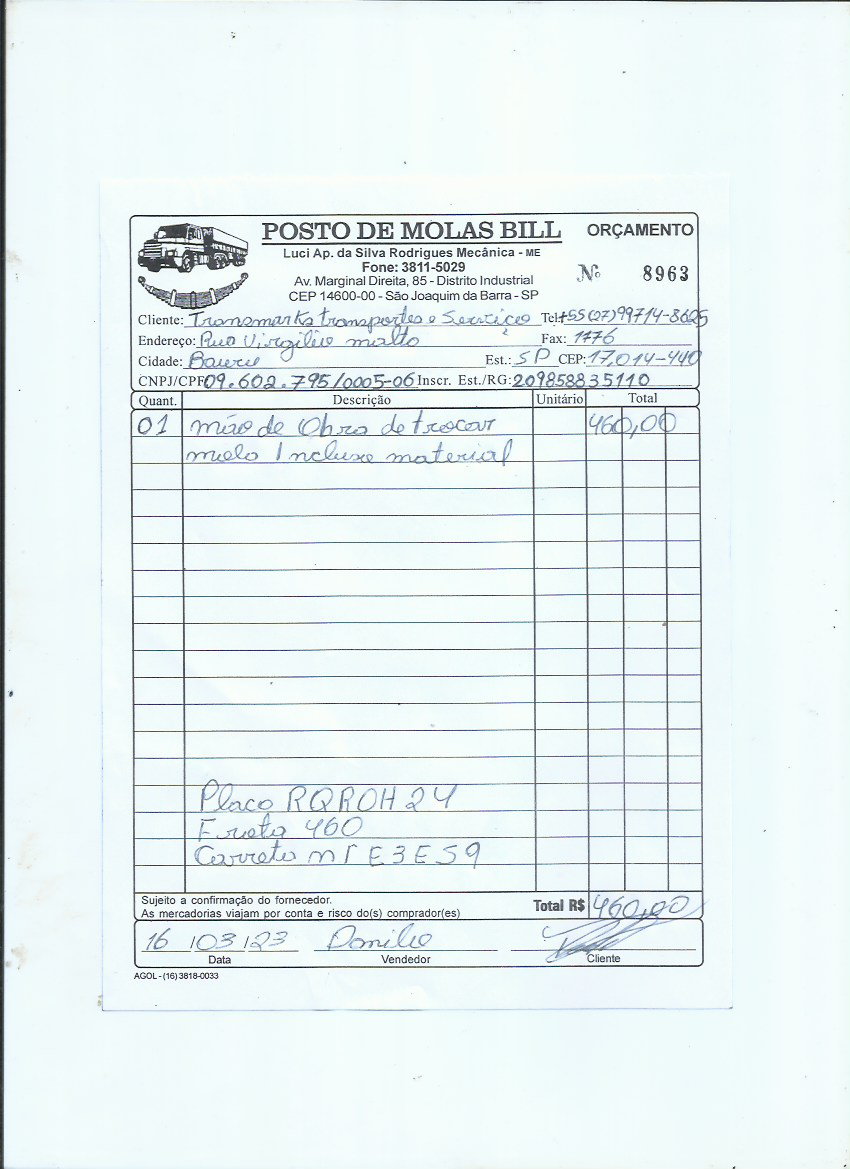 POSTO DE MOLAS BILL
ORÇAMENTO
Luci Ap. da Silva Rodrigues Mecânica - ME
Fone: 3811-5029
Av. Marginal Direita, 85 - Distrito Industrial
CEP 14600-00 - São Joaquim da Barra - SP
Nº 8963
Cliente: Transmarks transportes e Serviços Tel: +55 (27) 99714-8625
Endereço: Rua Virgilio malta Fax: 1776
Cidade: Bauru Est.: SP CEP: 17.014-440
CNPJ/CPF 09.602.795/0005-06 Inscr. Est./RG: 209858835110
Quant. Descrição Unitário Total
01 mão de Obra de trocar 460,00
mola Incluse material
Placa RQROH24
Frota 460
Carreta
Sujeito a confirmação do fornecedor.
As mercadorias viajam por conta e risco do(s) comprador(es)
Total R$ 460,00
16/03/23 Danilo
Data Vendedor Cliente
AGOL - (16) 3818-0033